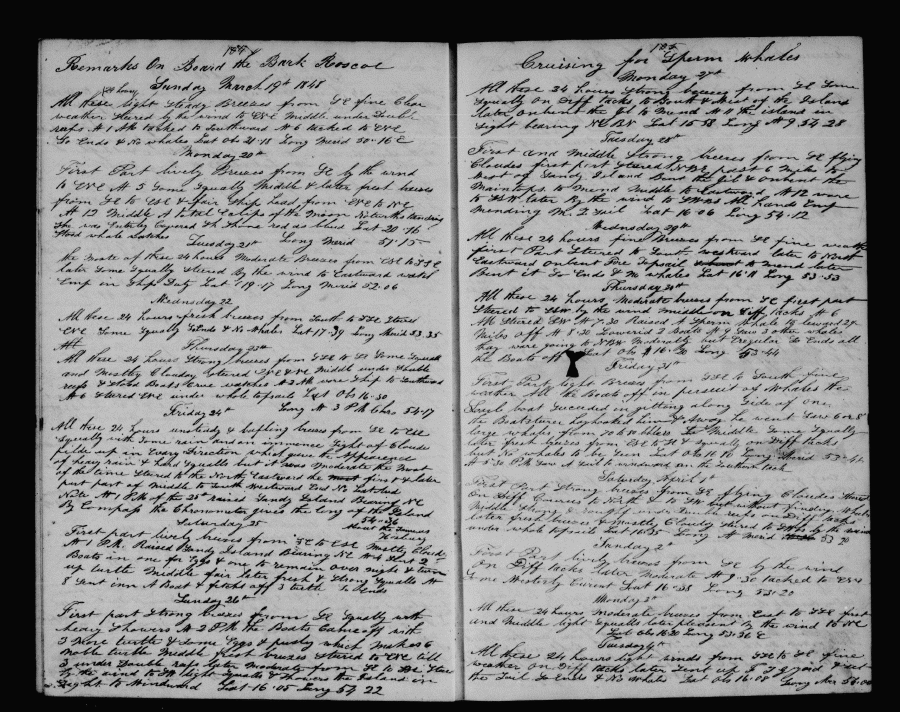 Remarks On Board the Bark Roscoe
Sunday March 19th 1848
All these 24 hours light steady Breezes from SE fine Clear
weather Stered by the wind to ENE Middle under Double
reefs At 1 AM tacked to Southward At 6 tacked to ENE
So Ends & No whales Lat obs 21-18 Long Merid 50-16 E
Monday 20th
First Part lively Breezes from SE by the wind
to ENE At 5 Some Squally Middle & later fresh breeses
from SE to ESE & fair Ship head from ENE to NE
At 12 Middle A total Eclips of the Moon
She was Entirely Covered & Shone red as blud Lat 20-16
Stood whale watches
Tuesday 21st Long Merid 51-15
the Most of these 24 hours Moderate Breezes from ESE to SSE
later Some Squally Stered By the wind to Eastward watch
Emp in Ship Duty Lat 19-17 Long Merid 52.06
Wednesday 22
All these 24 hours fresh breezes from South to SSE Stered
ENE Some Squally So Ends & No Whales Lat 17-39 Long Merid 53.35
Thursday 23rd
All these 24 hours Strong breezes from SSE to SE Some Squalls
and Mostly Cloudy Stered ENE & NE Middle under Double
reefs & Stood Boats Crue watches At 2 AM wore Ship to Southward
At 6 Stered ENE under whole topsails Lat Obs 16-30
Friday 24th Long At 3 PM Chro 54-17
All these 24 hours unstidy & baffling breezes from SE to ESE
Squally with Some rain and an immence Sight of Clouds
pilde up in Every Direction which gave the Appearence
of heavy rain & hard Squalls but it was Moderate the Most
of the time Stered to the North Eastward the first & later
part part of Middle to South Eastward
Note At 1 PM of the 25th raised Sandy Island Bearing NE
By Compass the Chronometer gives the long of the Island
54-36
Saturday 25
First part lively breses from SE to ESE Mostly Cloudy
At 1 P.M. Raised Sandy Island Bearing NE At 4 Sent 2
Boats in one for Eggs & one to remain over night & turn
up turtle Middle fair later fresh & Strong Squalls At
8 Sent inn A Boat & fetched off 3 turtle So Ends
Sunday 26th
First part Strong breezes from SE Squally with
heavy Showers At 2 PM the Boats Came off with
3 More turtle & Some Eggs & pusley which Makes 6
Noble turtle Middle fresh breezes Stered to ENE till
3 under Double reefs later Moderate
By the wind to SW light Squalls & Showers the Island in
Sight to Windward Lat 16-05 Long 54 22
Cruising for Sperm Whales
Monday 27th
All these 24 hours Strong breezes from SE Some
Squally on Diff tacks to South & West of the Island
later Onbent the Jib to Mend At 11 the island in
Sight bearing NEBN Lat 15-58 Long At 9 54-28
Tuesday 28th
First and Middle Strong breezes from SE flying
Cloudes first part Stered NBE past 6 Miles to
West of Sandy Island Bent the Jib & Onbent the
Maintops. to Mend Middle to Eastward At 12 wore
to SW later By the wind to All hands Emp
Mending M. T. Sail Lat 16-06 Long 54-12
Wednesday 29th
All these 24 hours fine Breezes from SE fine weath
first Part Stered to Sout. westward later to North
Eastward onbent Fore Topsail to mend later
Bent it So Ends & No whales Lat 16-11 Long 53-53
Thursday 30th
All these 24 hours Moderate breezes from SE first part
Stered to SSW by the wind Middle on Diff tacks At 6
AM Stered SW At 7-30 Raised A Sperm Whale by leward 2½
Miles off At 8-30 Lowered 2 Boats At 9 Saw 2 other whales
they were going to NBW Moderatly but Eregular So Ends all
the Boats off Lat Obs 16-20 Long 53-44
Friday 31st
First Part light Breses from SSE to South fine
weather All the Boats off in persuit of Whales the
Larb boat Suceeded in getting along Side of one
the Boatsteerer dophooked him & Away he went Saw 6 or 8
large whales from 70 to 100 bbls Middle Some Squally
later fresh breezes from ESE to SE & Squally on Diff tacks
but No whales to be Seen Lat Obs 16-10 Long Merid 53-41
At 5-30 PM Saw A Sail to windward on the Southern tack
Saturday April 1st
First Part Strong breezes from SE flying Cloudes Stered
On Diff Courses to North & to SW but without finding Whales
Middle Strong & rough under Double reefs on Diff tacks
later fresh breezes & Mostly Cloudy Stered to
under whole topsails Lat 16-35 Long At Merid 53 20
Sunday 2nd
First Part lively breezes from SE by the wind
On Diff tacks later Moderate At 7-30 tacked to ENE
Some Westerly Current Lat 16-35 Long 53-20
Monday 3rd
All these 24 hours Moderate breezes from East to SSE first
and Middle light Squalls later pleasent By the wind to NE
Lat Obs 16-20 Long 53-36 E
Tuesday 4th
All these 24 hours light winds from SSE to SE fine
weather On Diff tacks later
the Sail So Ends & No Whales Lat Obs 16-08 Long Mer 54-00